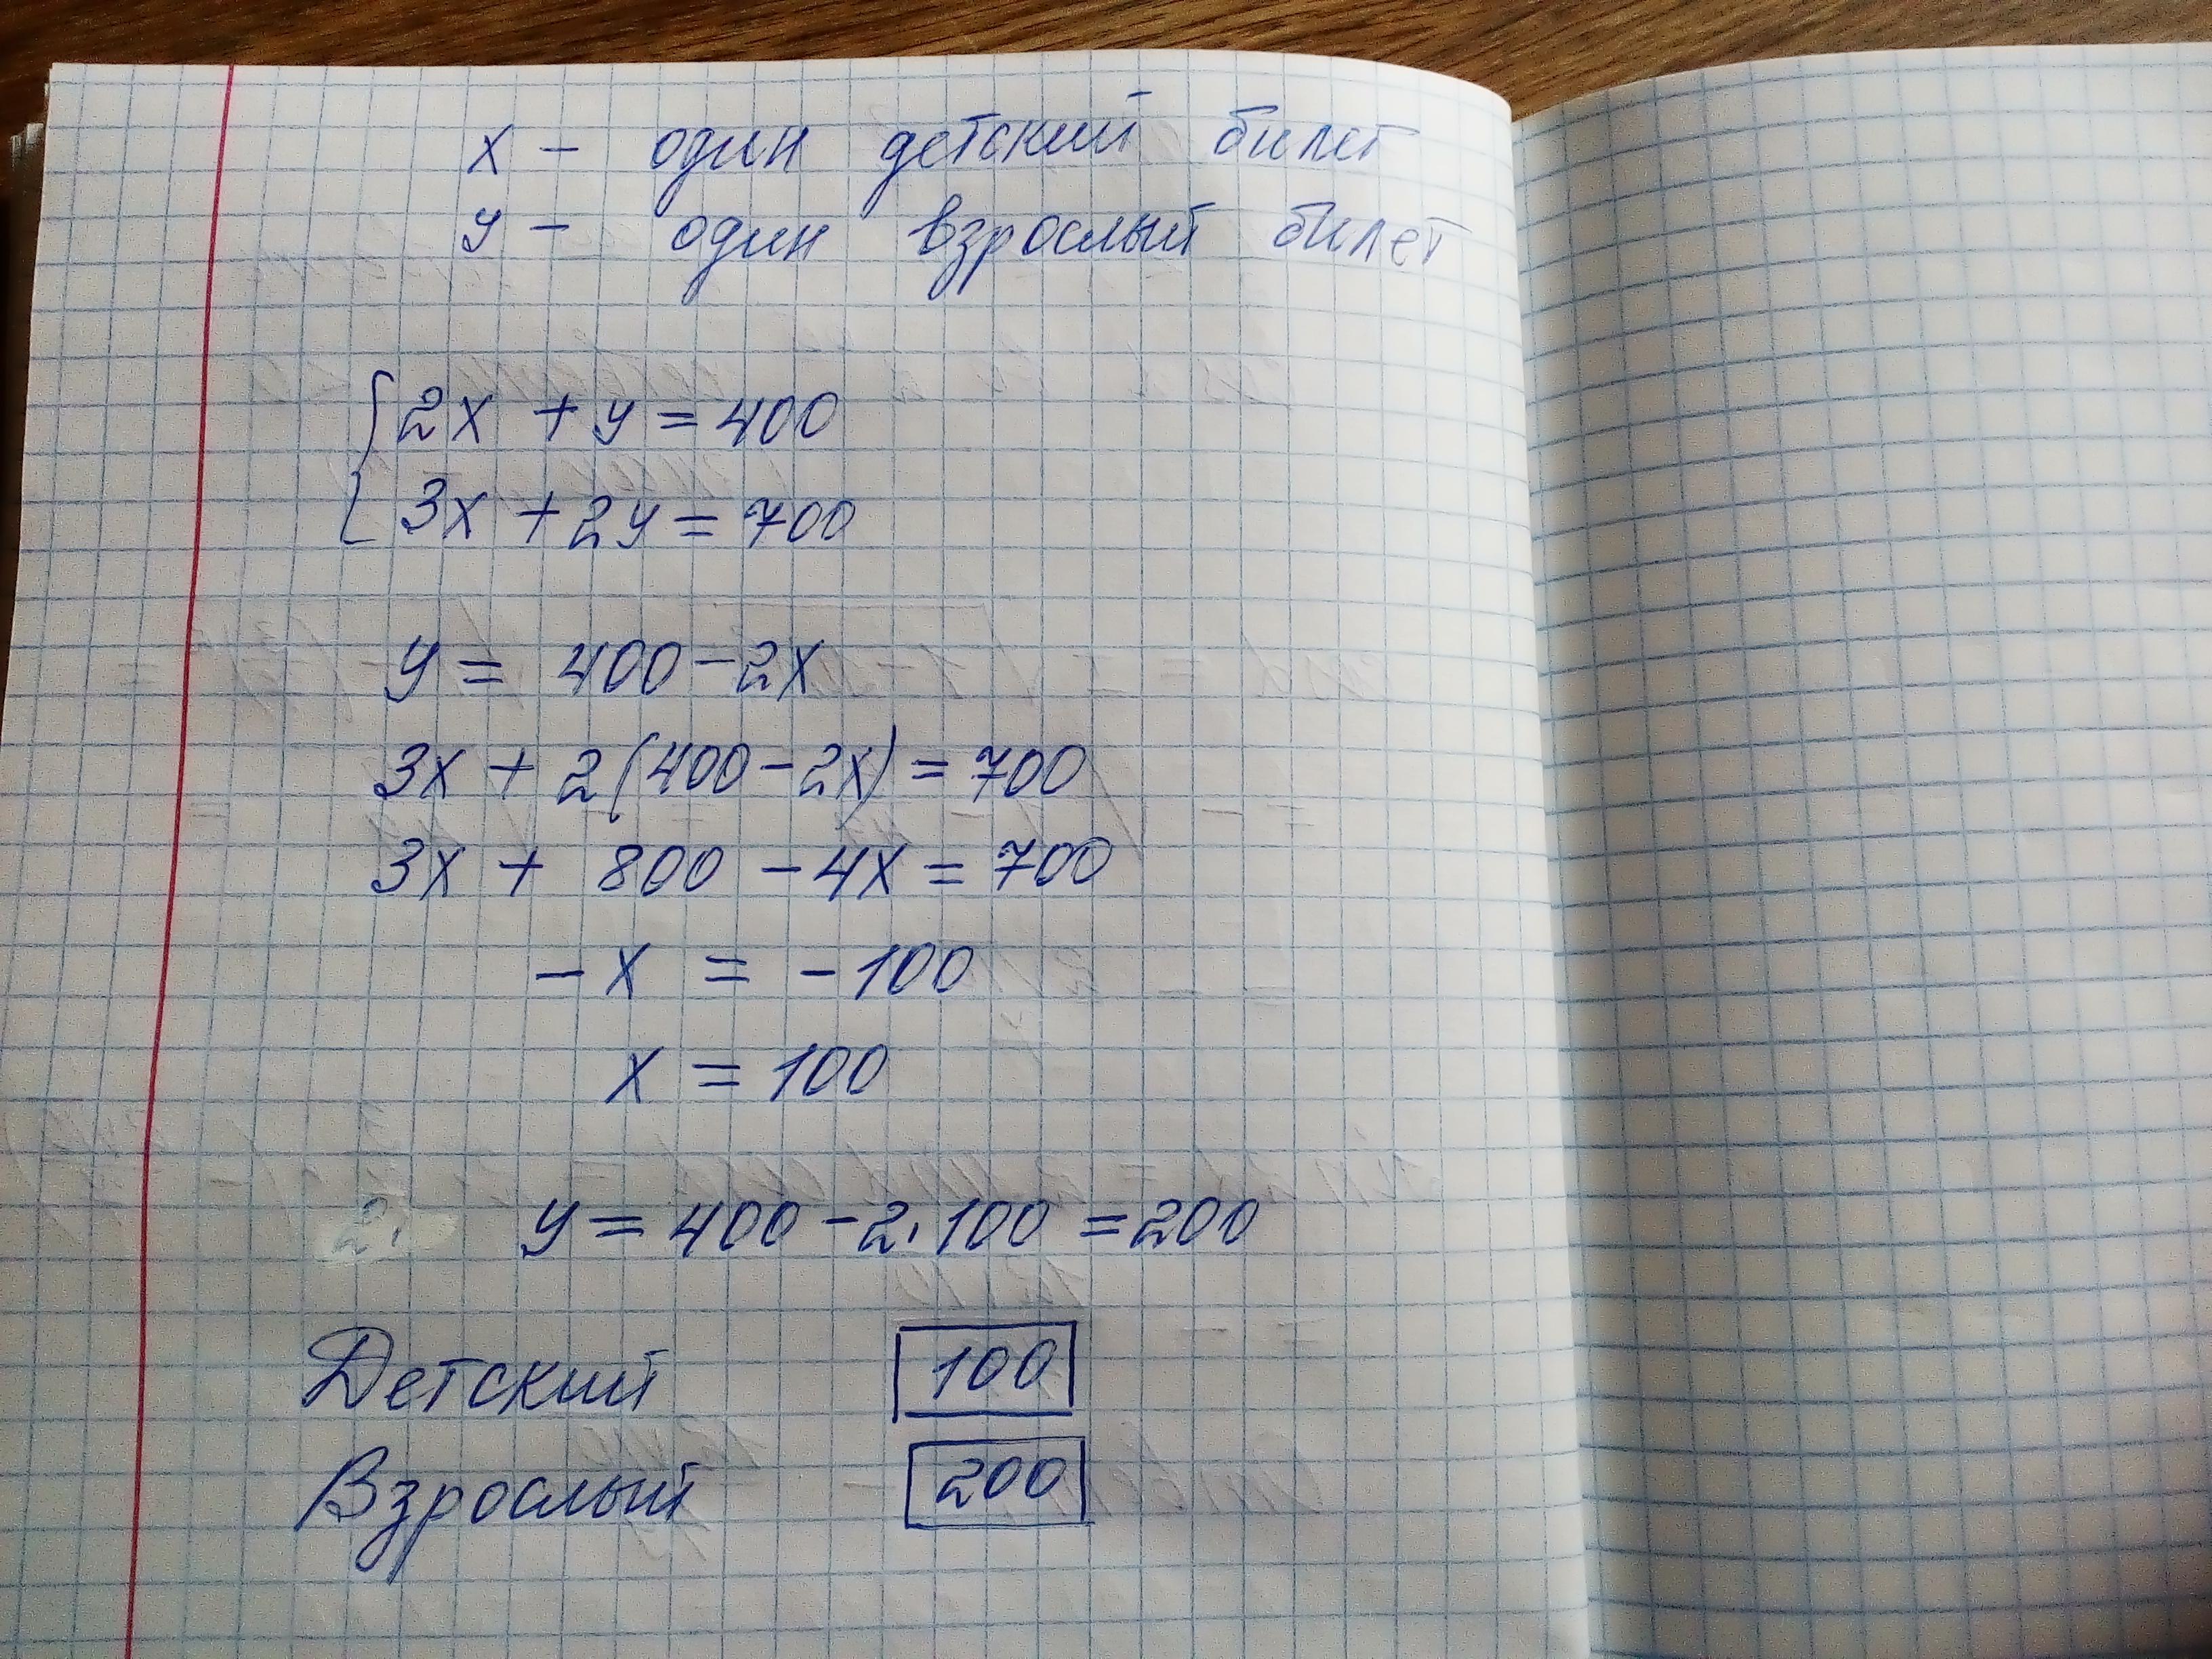 x – один детский билет
y – один взрослый билет
2x + y = 400
3x + 2y = 700
y = 400 – 2x
3x + 2(400 – 2x) = 700
3x + 800 – 4x = 700
– x = – 100
x = 100
2. y = 400 – 2 · 100 = 200
Детский 100
Взрослый 200